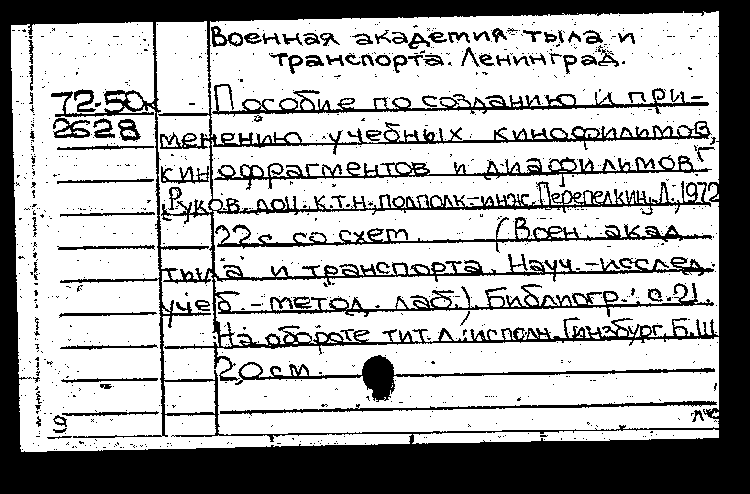 Военная академия тыла и
транспорта. Ленинград.
72-50к Пособие по созданию и при-
2628 менению учебных кинофильмов,
кинофрагментов и диафильмов
Руков. доц. к.т.н., полполк-инж. Перепелкин, Л., 1972
22 с. со схем. (Воен. акад.
тыла и транспорта. Науч.-исслед.
учеб.-метод. лаб.) Библиогр.: с. 21.
На обороте тит. л.: исполн. Гинзбург, Б.Ш
20 см.